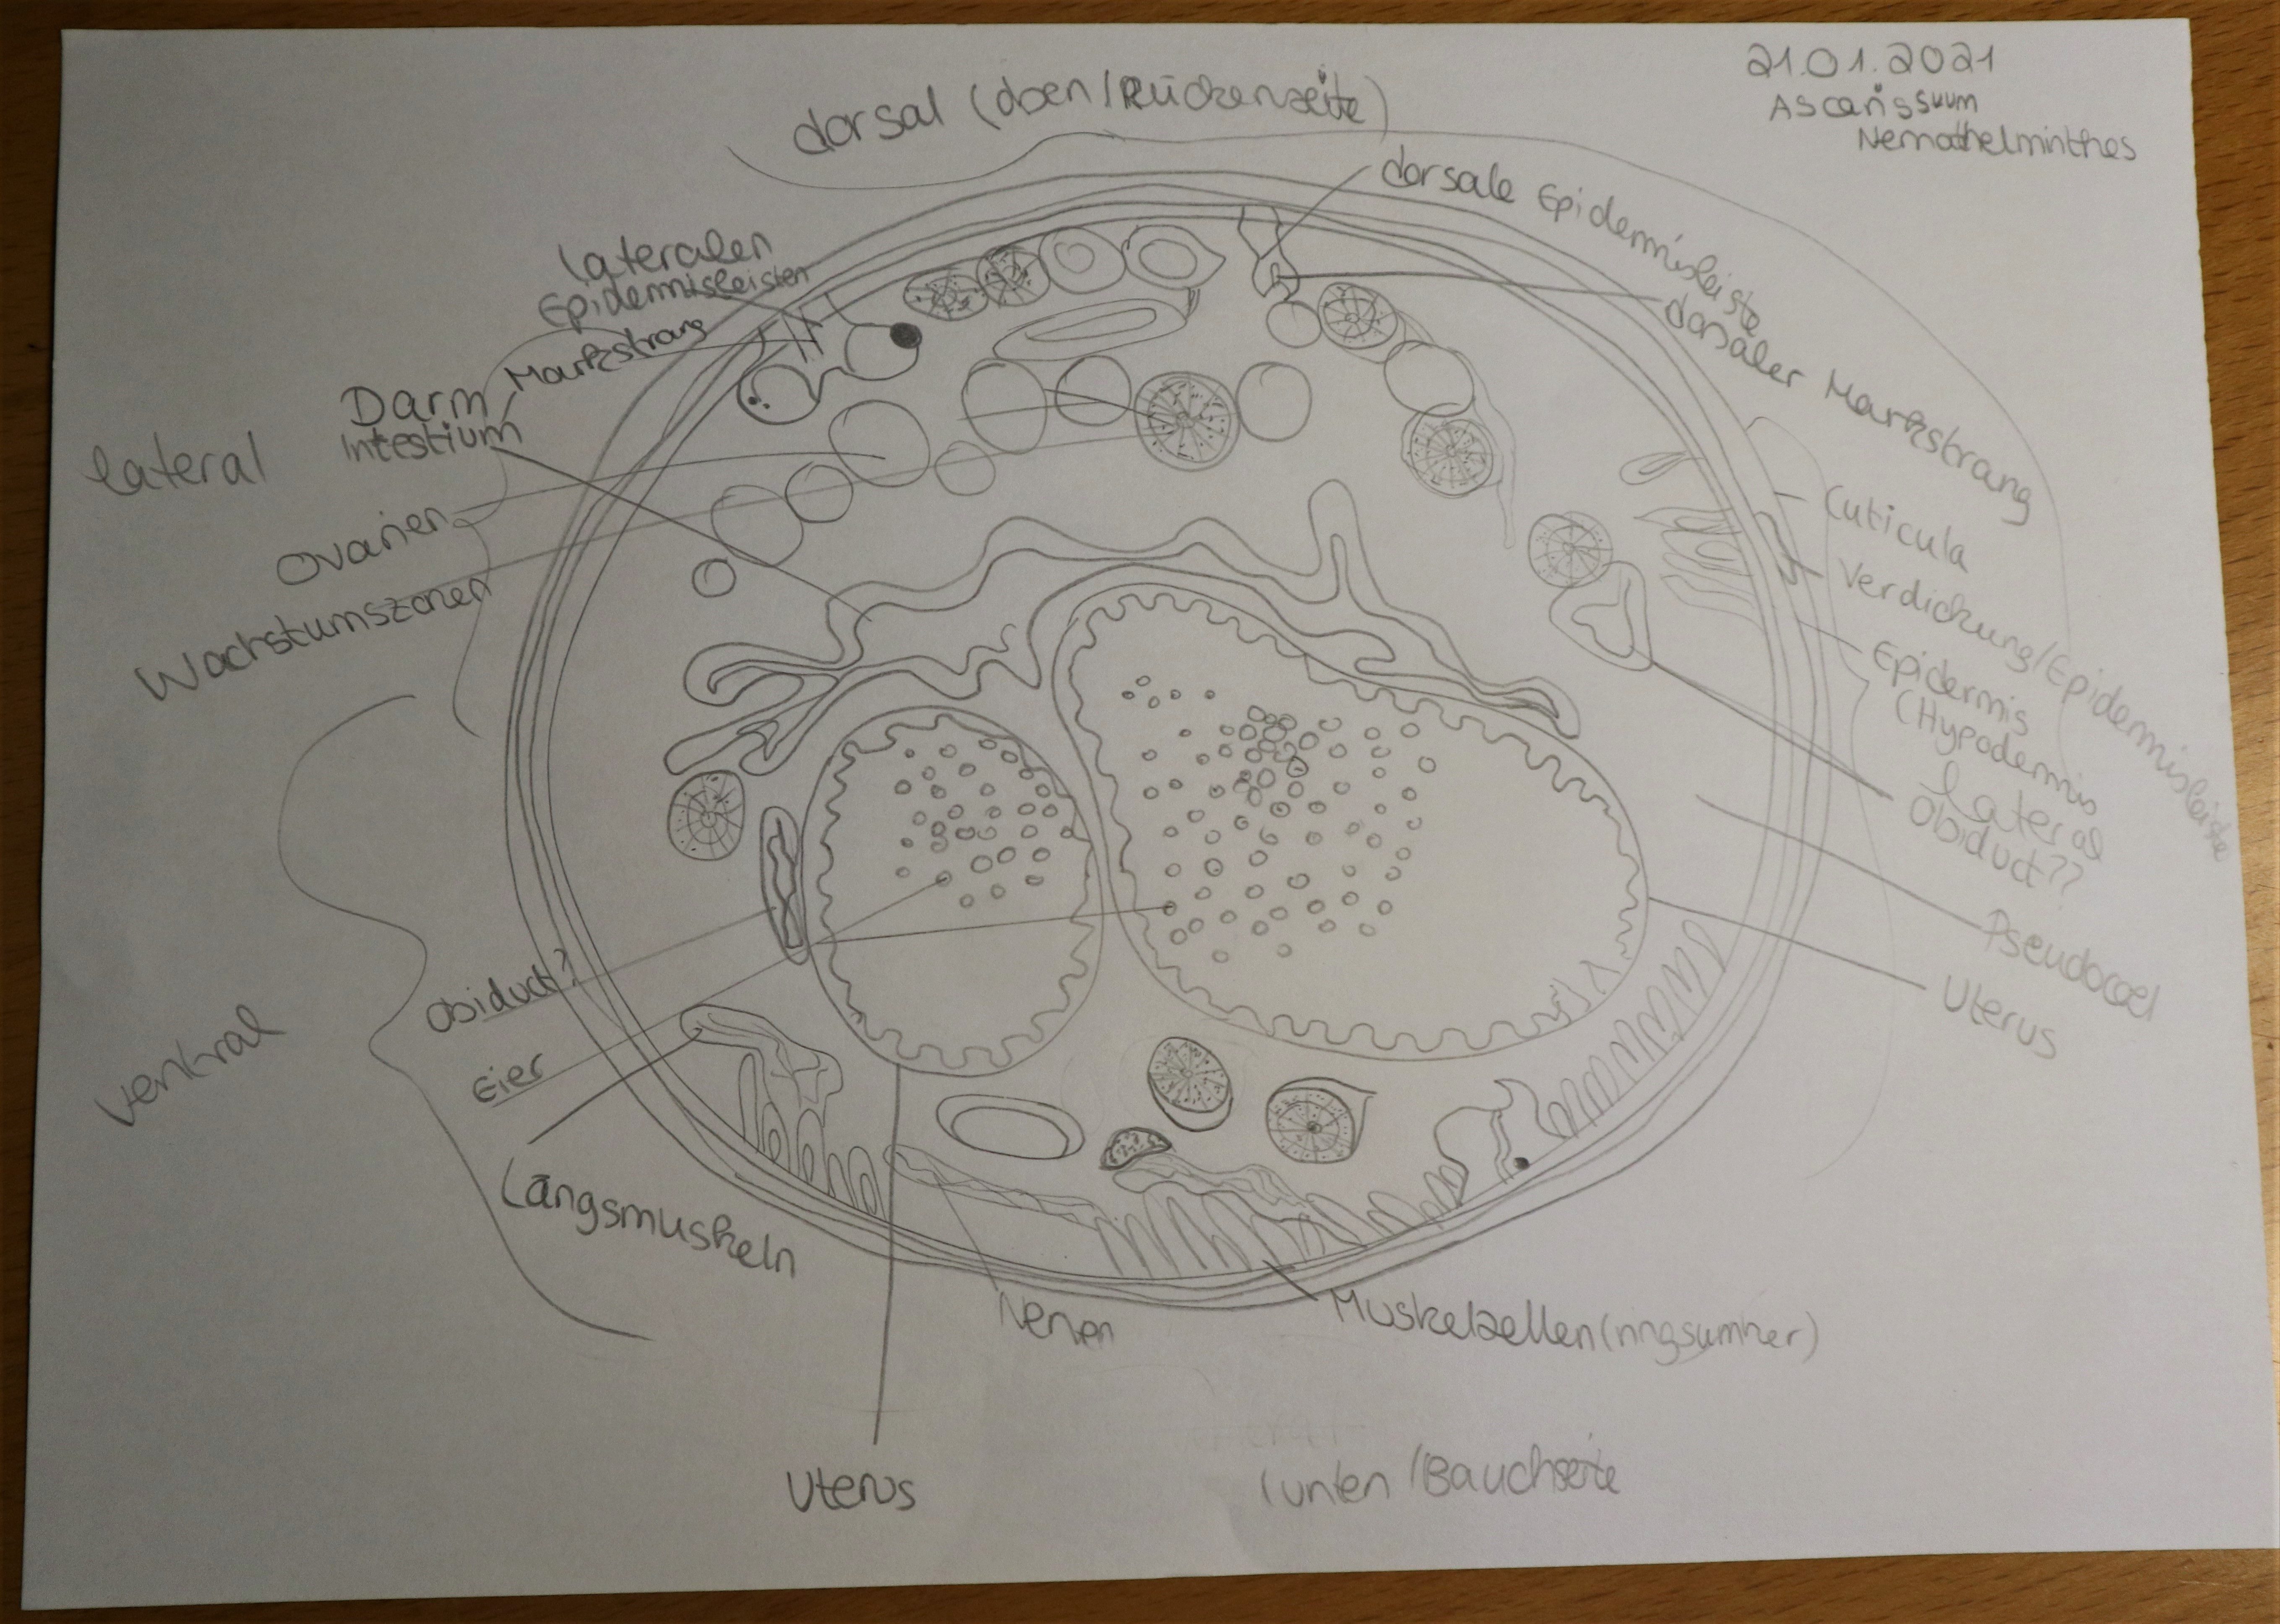 21.01.2021
Ascaris suum
Nemathelminthes
dorsal (oben/Rückenseite)
dorsale Epidermisleiste
dorsaler Markstrang
lateralen
Epidermisleisten
Markstrang
Darm/
Intestium
lateral
Ovarien
Wachstumszonen
Cuticula
Verdickung/Epidermisleiste
Epidermis
(Hypodermis
lateral
Obiduct??
Pseudocoel
Uterus
ventral
Obiduct?
Eier
Längsmuskeln
Nerven
Muskelzellen (ringsumher)
Uterus
(unten/Bauchseite